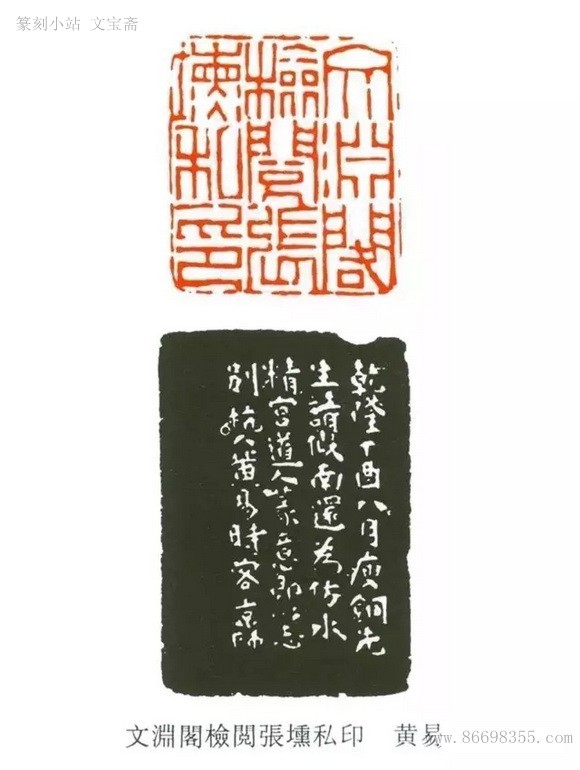 篆刻小站 文宝斋
文淵閣
檢閱張
壎私印
乾隆丁酉八月瘦銅先
生請假南還為仿水
精宮道人篆意即以志
別杭人黃易時客京師
文淵閣檢閲張壎私印 黄易
www.86698355.com